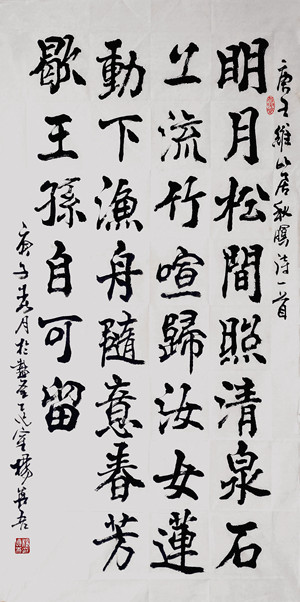 唐王維山居秋暝詩一首
明月松間照清泉石
上流竹喧歸汝女蓮
動下漁舟隨意春芳
歇王孫自可留
庚子春月於